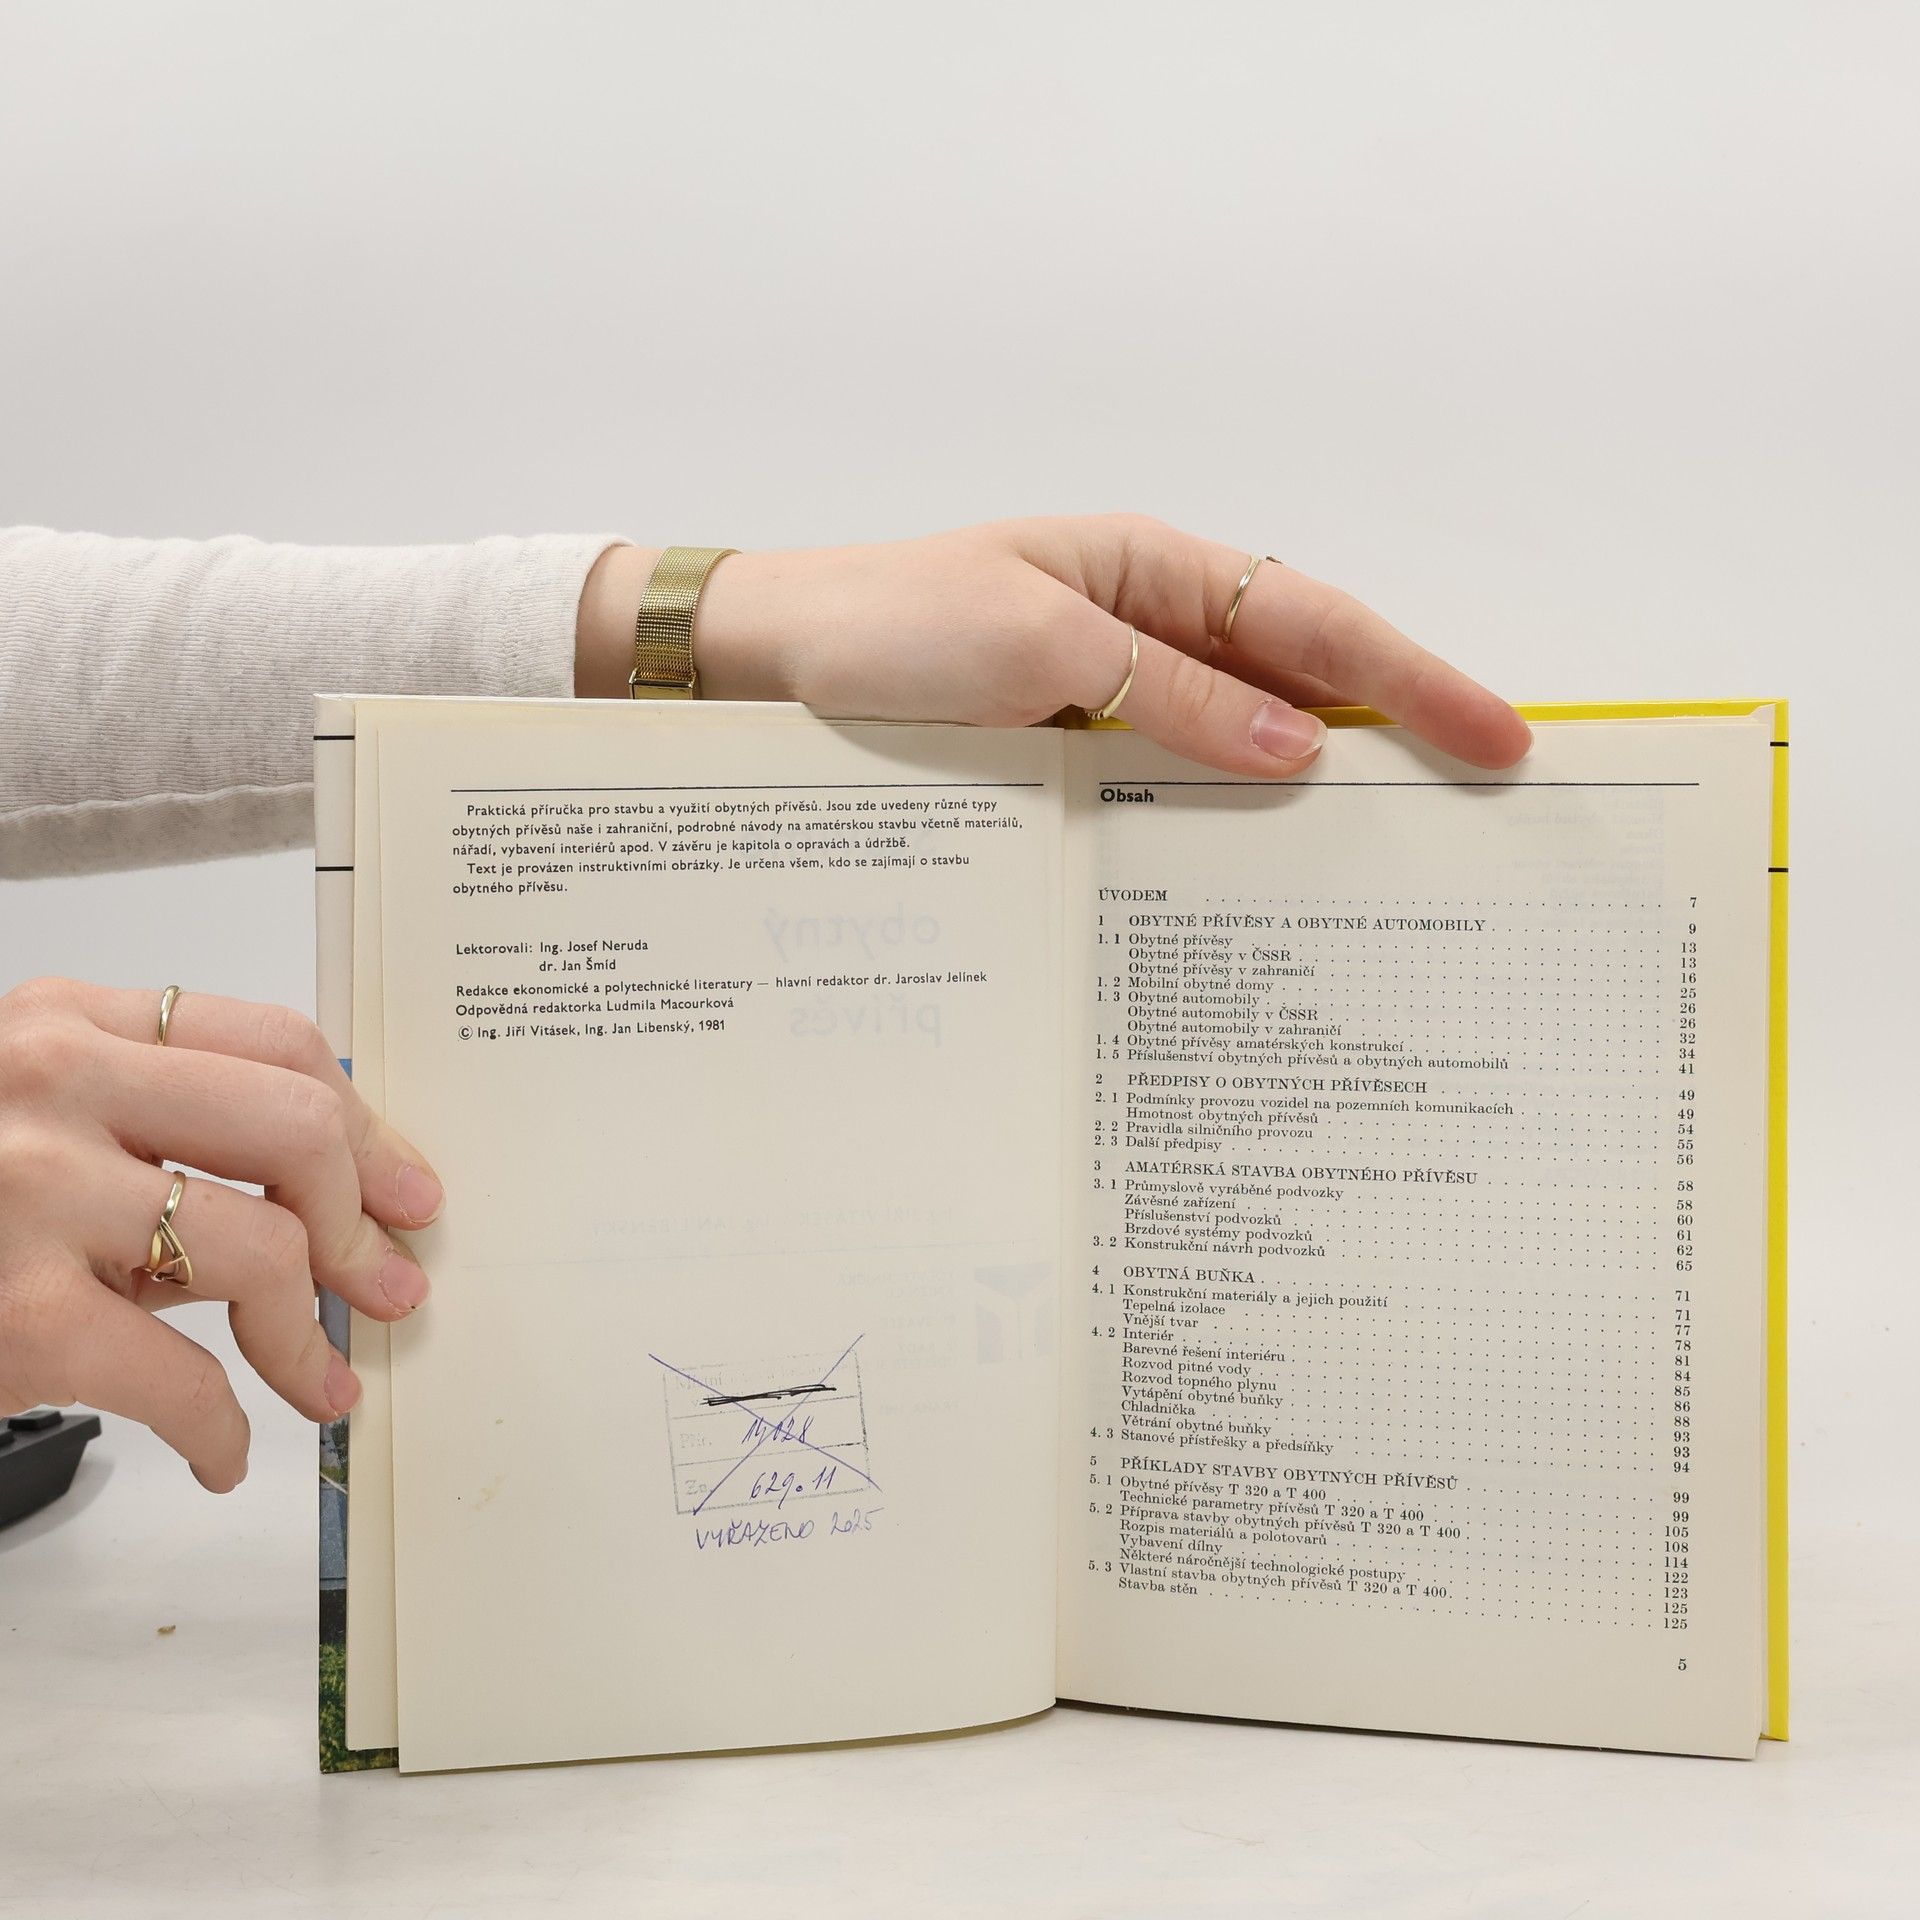 Praktická příručka pro stavbu a využití obytných přívěsů. Jsou zde uvedeny různé typy
obytných přívěsů naše i zahraniční, podrobné návody na amatérskou stavbu včetně materiálů,
nářadí, vybavení interiérů apod. V závěru je kapitola o opravách a údržbě.
Text je provázen instruktivními obrázky. Je určena všem, kdo se zajímají o stavbu
obytného přívěsu.
Lektorovali: Ing. Josef Neruda
dr. Jan Šmíd
Redakce ekonomické a polytechnické literatury — hlavní redaktor dr. Jaroslav Jelínek
Odpovědná redaktorka Ludmila Macourková
© Ing. Jiří Vitásek, Ing. Jan Libenský, 1981
Místní
Př.
14028
629.11
VYŘAZENO 2025
Obsah
ÚVODEM . . . 7
1 OBYTNÉ PŘÍVĚSY A OBYTNÉ AUTOMOBILY . . . 9
1. 1 Obytné přívěsy . . . 13
Obytné přívěsy v ČSSR . . . 13
Obytné přívěsy v zahraničí . . . 16
1. 2 Mobilní obytné domy . . . 25
1. 3 Obytné automobily . . . 26
Obytné automobily v ČSSR . . . 26
Obytné automobily v zahraničí . . . 32
1. 4 Obytné přívěsy amatérských konstrukcí . . . 34
1. 5 Příslušenství obytných přívěsů a obytných automobilů . . . 41
2 PŘEDPISY O OBYTNÝCH PŘÍVĚSECH . . . 49
2. 1 Podmínky provozu vozidel na pozemních komunikacích . . . 49
Hmotnost obytných přívěsů . . . 54
2. 2 Pravidla silničního provozu . . . 55
2. 3 Další předpisy . . . 56
3 AMATÉRSKÁ STAVBA OBYTNÉHO PŘÍVĚSU . . . 58
3. 1 Průmyslově vyráběné podvozky . . . 58
Závěsné zařízení . . . 60
Příslušenství podvozků . . . 61
Brzdové systémy podvozků . . . 62
3. 2 Konstrukční návrh podvozků . . . 65
4 OBYTNÁ BUŇKA . . . 71
4. 1 Konstrukční materiály a jejich použití . . . 71
Tepelná izolace . . . 77
Vnější tvar . . . 78
4. 2 Interiér . . . 81
Barevné řešení interiéru . . . 84
Rozvod pitné vody . . . 85
Rozvod topného plynu . . . 86
Vytápění obytné buňky . . . 88
Chladnička . . . 93
Větrání obytné buňky . . . 93
4. 3 Stanové přístřešky a předsíňky . . . 94
5 PŘÍKLADY STAVBY OBYTNÝCH PŘÍVĚSŮ . . . 99
5. 1 Obytné přívěsy T 320 a T 400 . . . 99
Technické parametry přívěsů T 320 a T 400 . . . 105
5. 2 Příprava stavby obytných přívěsů T 320 a T 400 . . . 108
Rozpis materiálů a polotovarů . . . 114
Vybavení dílny . . . 122
Některé náročnější technologické postupy . . . 123
5. 3 Vlastní stavba obytných přívěsů T 320 a T 400 . . . 125
Stavba stěn . . . 125
5